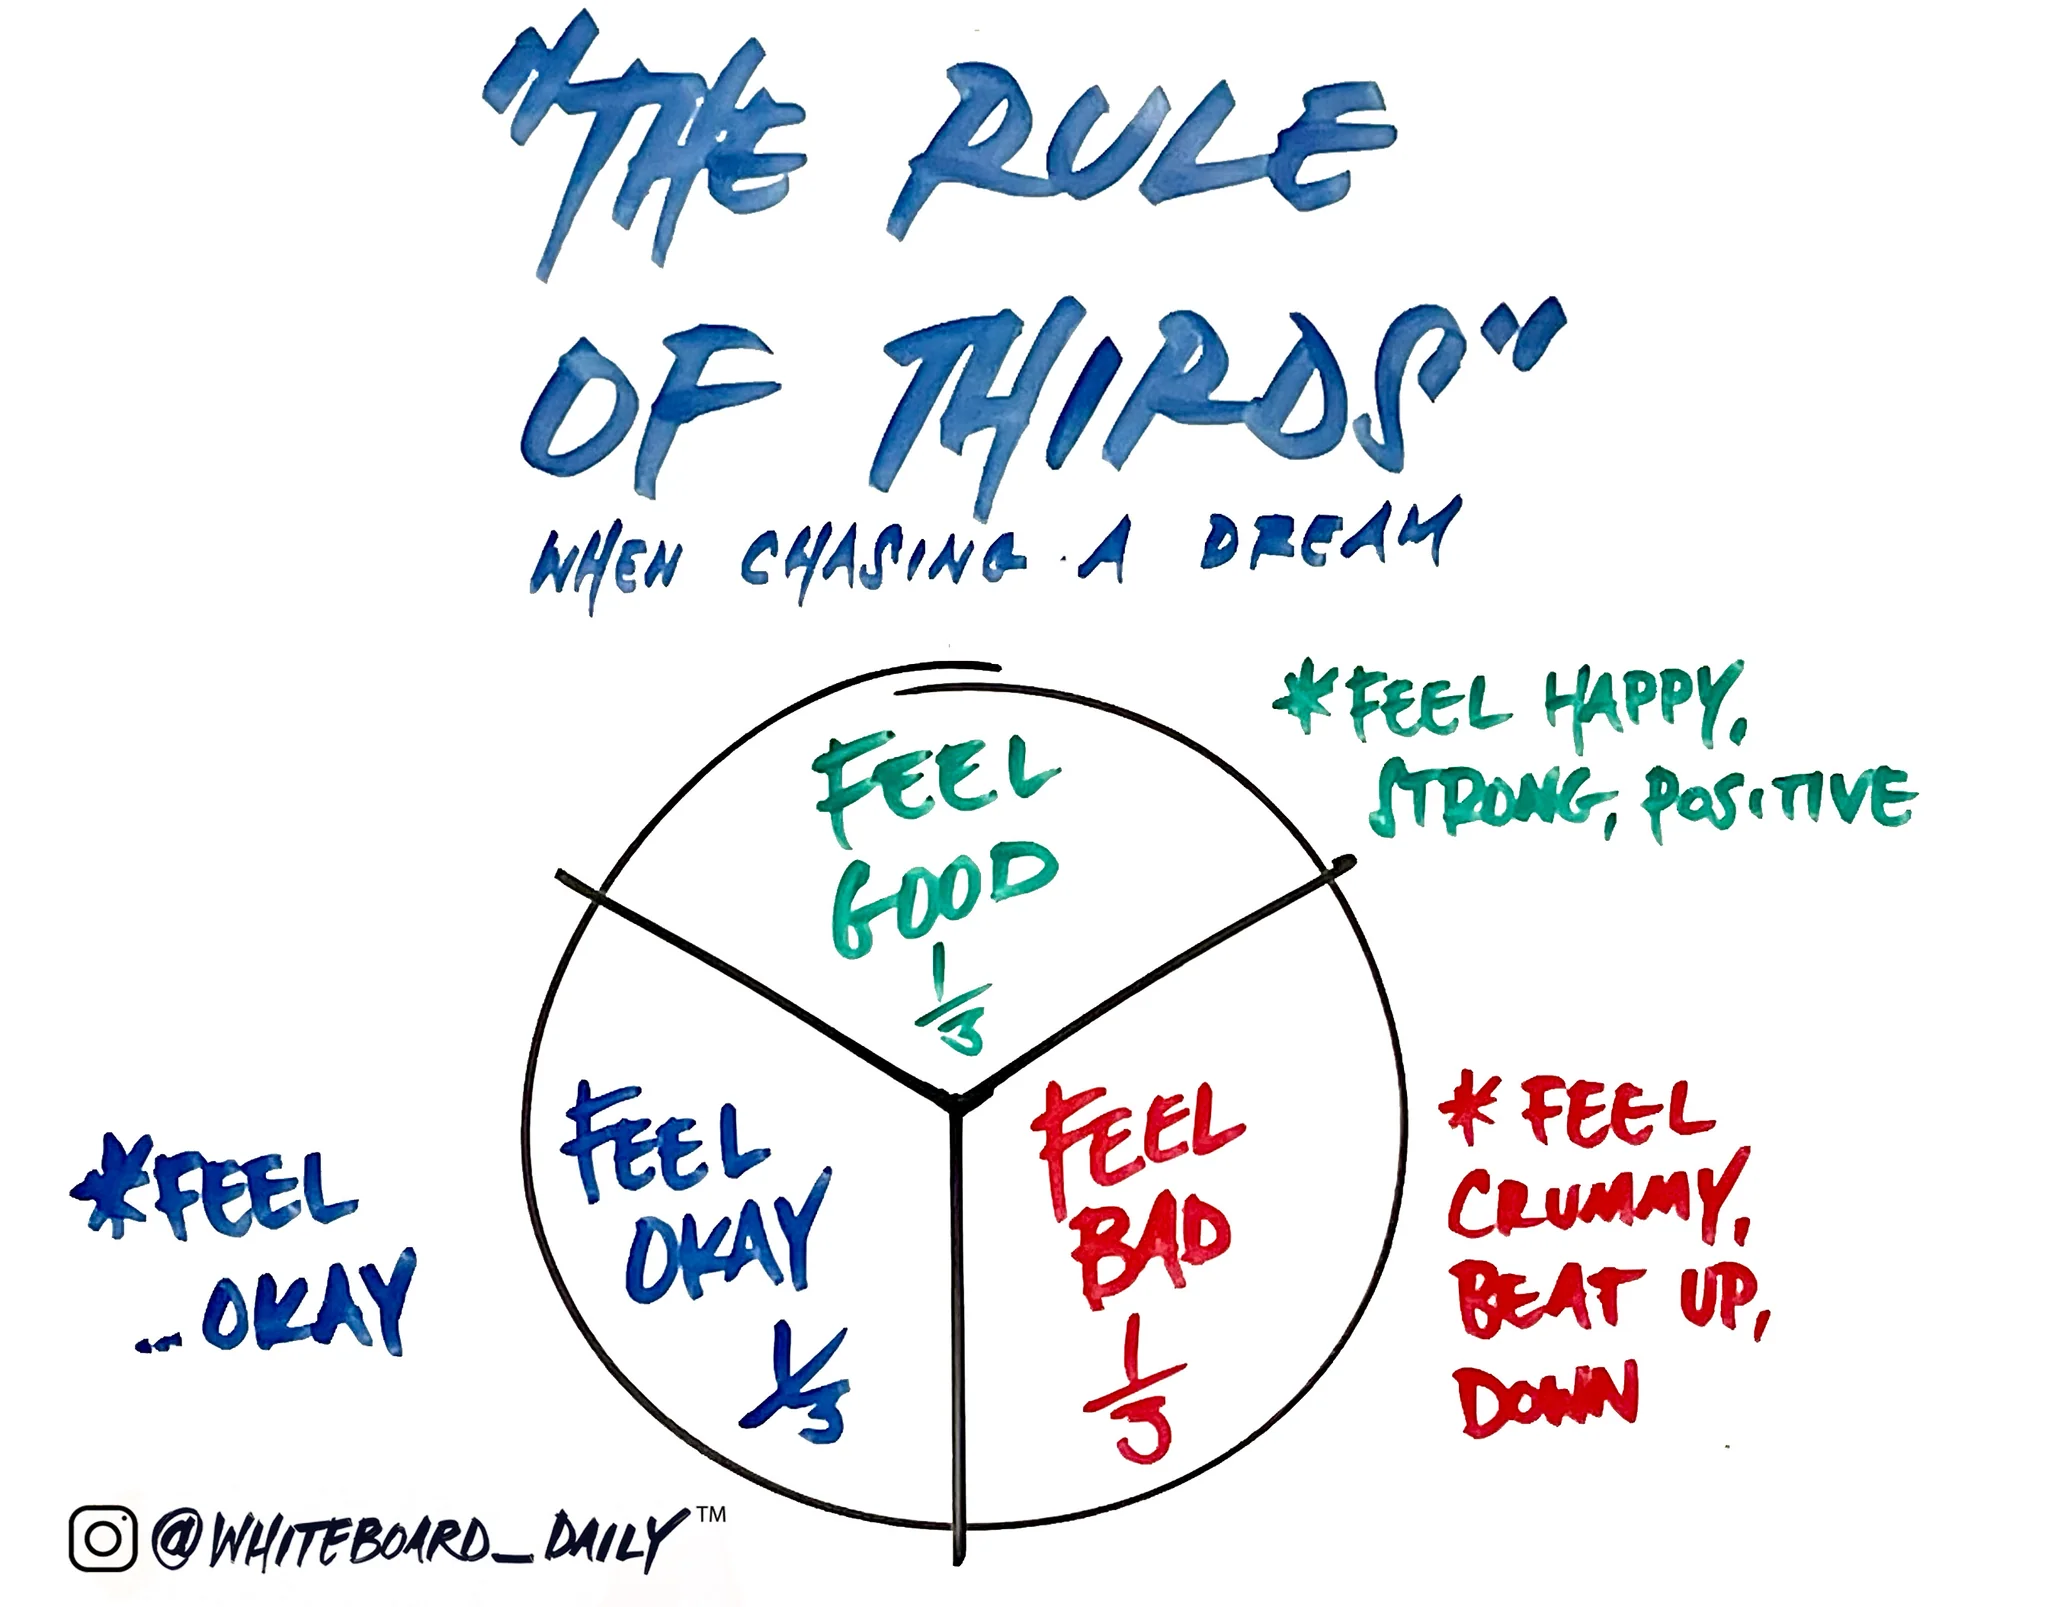 "THE RULE
OF THIRDS"
WHEN CHASING A DREAM
FEEL
GOOD
1/3
*FEEL HAPPY,
STRONG, POSITIVE
FEEL
OKAY
1/3
*FEEL
...OKAY
FEEL
BAD
1/3
* FEEL
CRUMMY,
BEAT UP,
DOWN
@WHITEBOARD_DAILY™